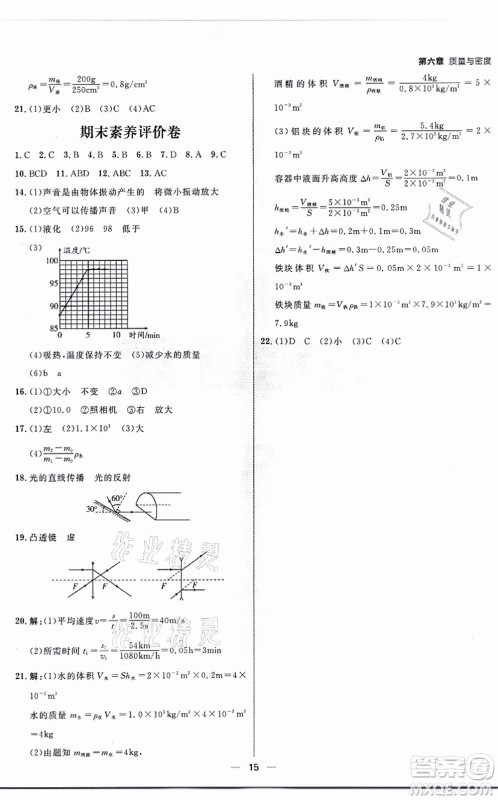 第六章 质量与密度
ρ油=m油/V油=200g/250cm³=0.8g/cm³
21.(1)更小 (2)B (3)C (4)AC
期末素养评价卷
1.C 2.B 3.C 4.A 5.A 6.C 7.B 8.C 9.B
10.BCD 11.ABD 12.AC 13.AC
14.(1)声音是由物体振动产生的 将微小振动放大
(2)空气可以传播声音 (3)甲 (4)B
15.(1)液化 (2)96 98 低于
(3) 温度/℃
100
95
90
85
0 5 10 时间/min
(4)吸热,温度保持不变 (5)减少水的质量
(6)b
16.(1)①大小 不变 ②a ③D
(2)10.0 ①放大 ②照相机 ③右
17.(1)左 (2)1.1×10³ (3)大
(4)m₂-m₀/m₁-m₀ρ水
18.光的直线传播 光的反射
60°
30°
19.凸透镜 虚
F F F F
20.解:(1)平均速度v=s/t=100m/2.5s=40m/s
(2)所需时间t₁=s₁/v₁=54km/1080km/h=0.05h=3min
21.解:(1)水的体积V水=Sh水=2×10⁻²m²×0.2m=4×
10⁻³m³
水的质量m水=ρ水V水=1.0×10³kg/m³×4×10⁻³m³
=4kg
(2)由题知m酒精=m水=4kg,
酒精的体积V酒精=m酒精/ρ酒精=4kg/0.8×10³kg/m³=5×
10⁻³m³
(3)铝块的体积V铝=m铝/ρ铝=5.4kg/2.7×10³kg/m³=
2×10⁻³m³
容器中液面升高高度Δh=V铝/S=2×10⁻³m³/2×10⁻²m²=0.1m
h酒精=V酒精/S=5×10⁻³m³/2×10⁻²m²=0.25m
h水′=h水+Δh=0.2m+0.1m=0.3m
Δh′=h水′-h酒精=0.3m-0.25m=0.05m
铁块体积V铁=Δh′S=0.05m×2×10⁻²m²=1×
10⁻³m³
铁块质量m铁=V铁ρ铁=1×10⁻³m³×7.9×10³kg/m³=
7.9kg
22.(1)D C (2)小 (3)B (4)C
作业精灵
作业精灵
15